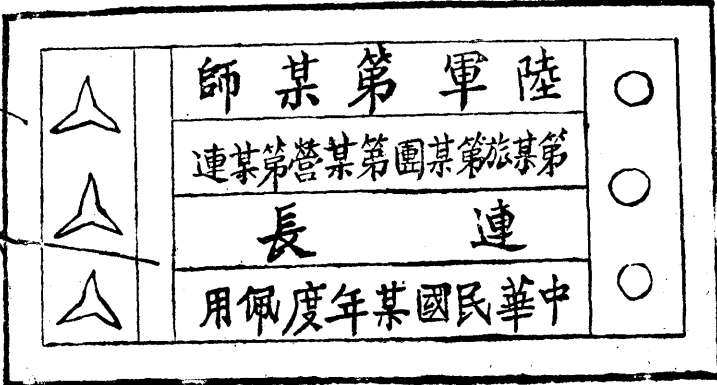 陸軍第某師
第某旅第某團第某營第某連
連長
中華民國某年度佩用